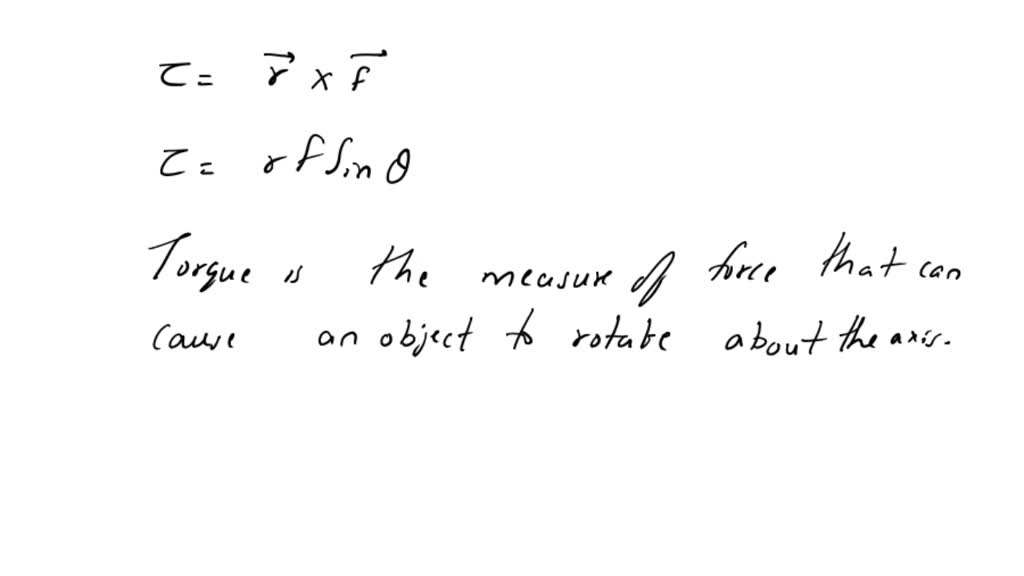 τ = r⃗ × f⃗
τ = r f Sin θ
Torque is the measure of force that can
cause an object to rotate about the axis.